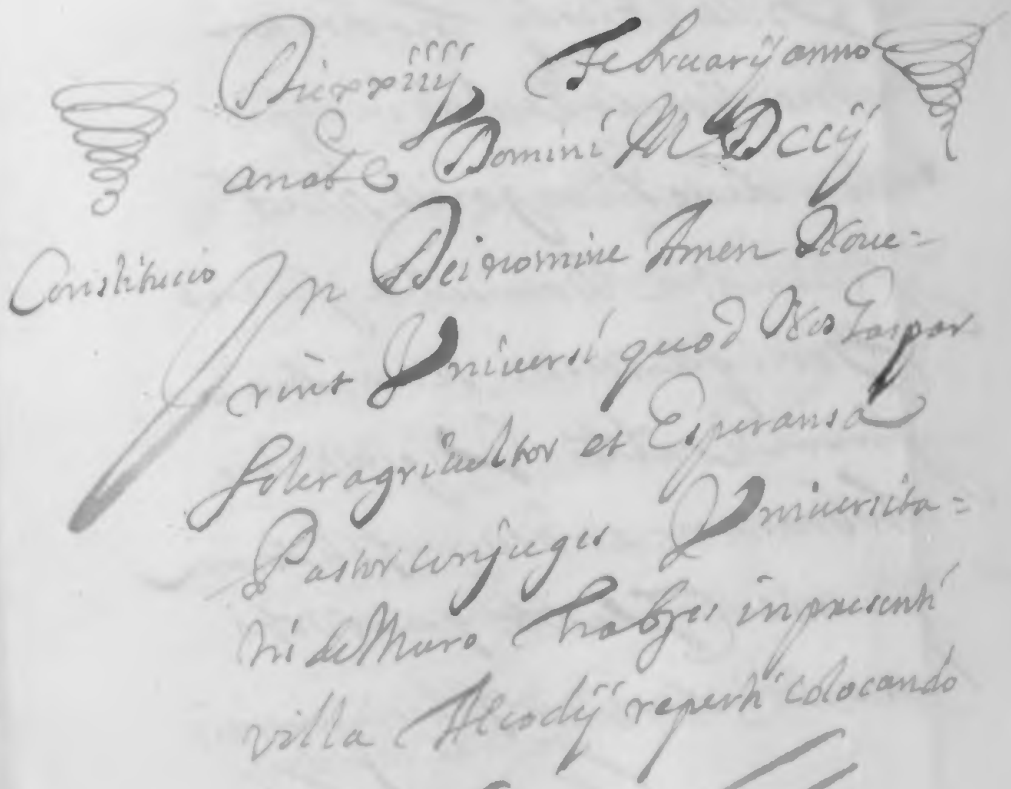 Die xxiiij Februarij anno
a natte Domini MDCCij
Constitucio
In Dei nomine Amen Noue=
rint Vniuersi quod Nos Gaspar
Soler agricultor et Esperansa
Pastor conjuges Vniuersita=
ti de Muro habres in presenti
villa Alcodij reperti colocando